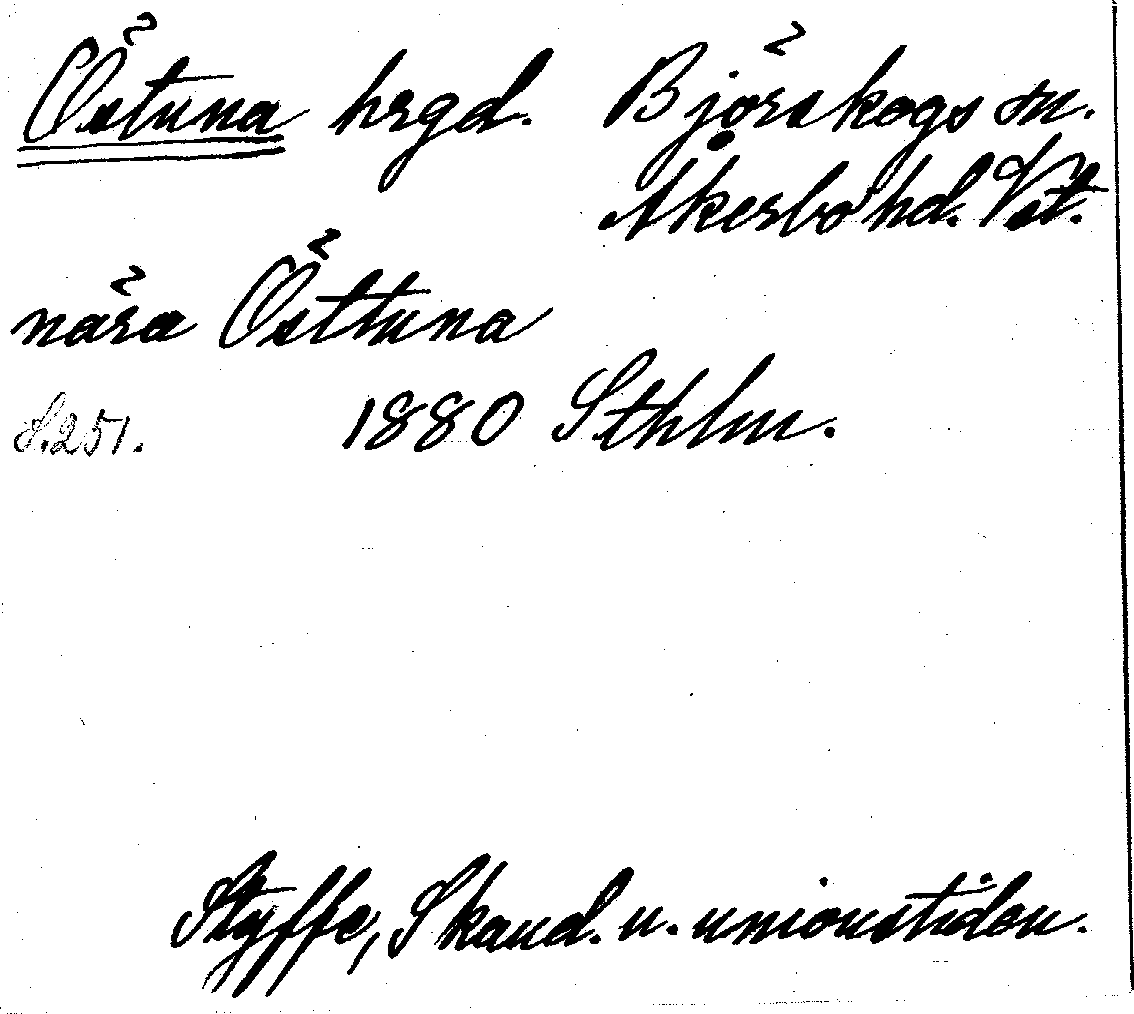 Östuna hrgd. Björskogs sn.
Åkerbo hd. Vst.
nära Östtuna
S. 251. 1880 Sthlm.
Styffe, Skand. u. unionstiden.